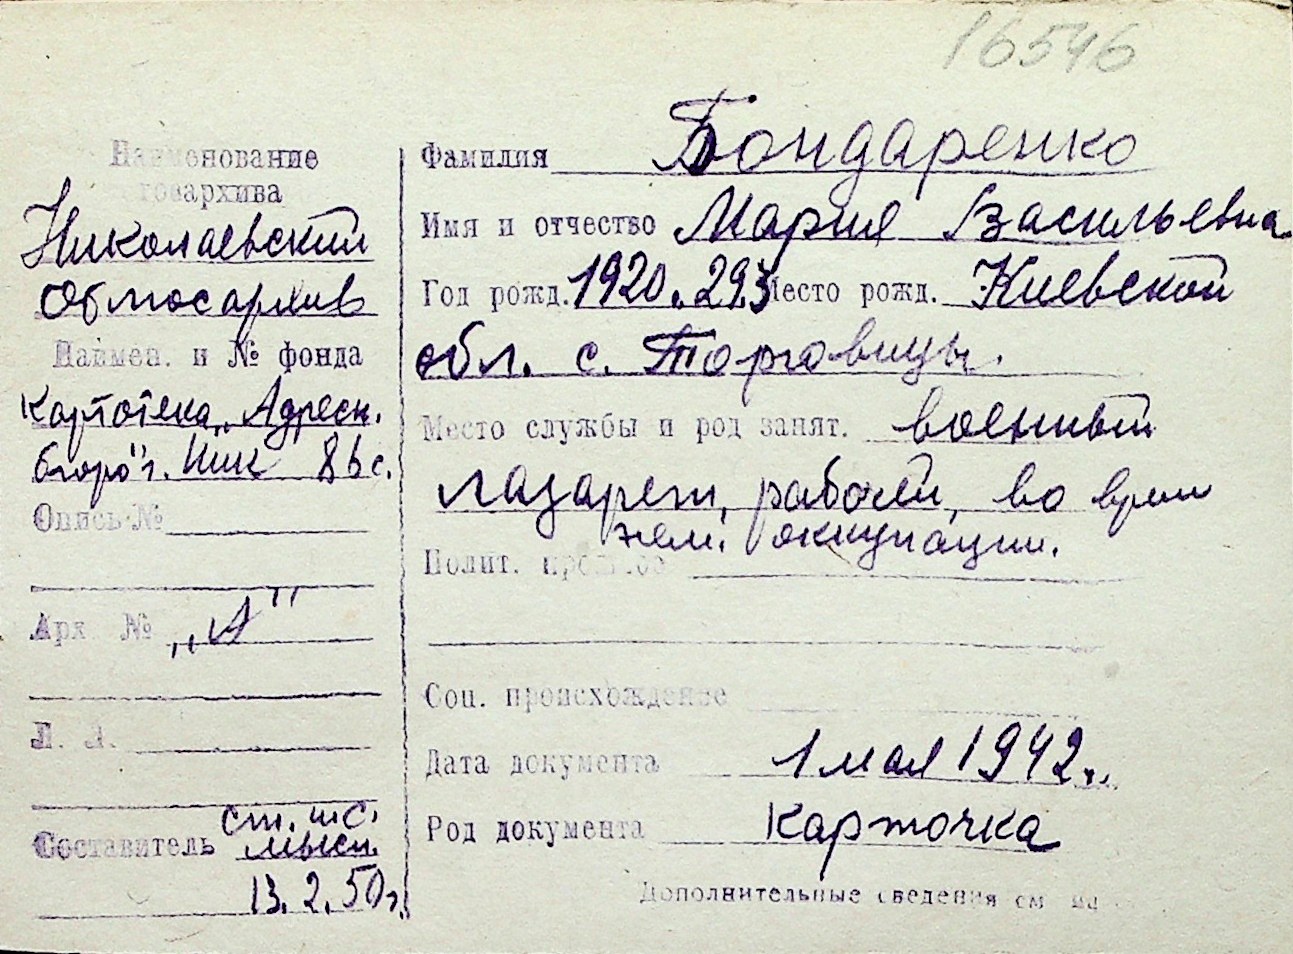 16546
Наименование
госархива
Николаевский
Облгосархив
Наймен. и № фонда
Картотека „Адресн.
бюро" г. Ник
Опись №
Арх №
„А"
Л. Л.
Составитель
ст. н.с.
13.2.50г.
Фамилия Бондаренко
Имя и отчество Мария Васильевна
Год рожд. 1920. 29.3 Место рожд. Киевской
обл. с. Торговицы.
Место службы и род занят. военный
лазарет, рабочей, во врем
нем. окупации.
Полит. прошлое
Соц. происхождение
Дата документа 1 мая 1942г.
Род документа Карточка
Дополнительные сведения см на